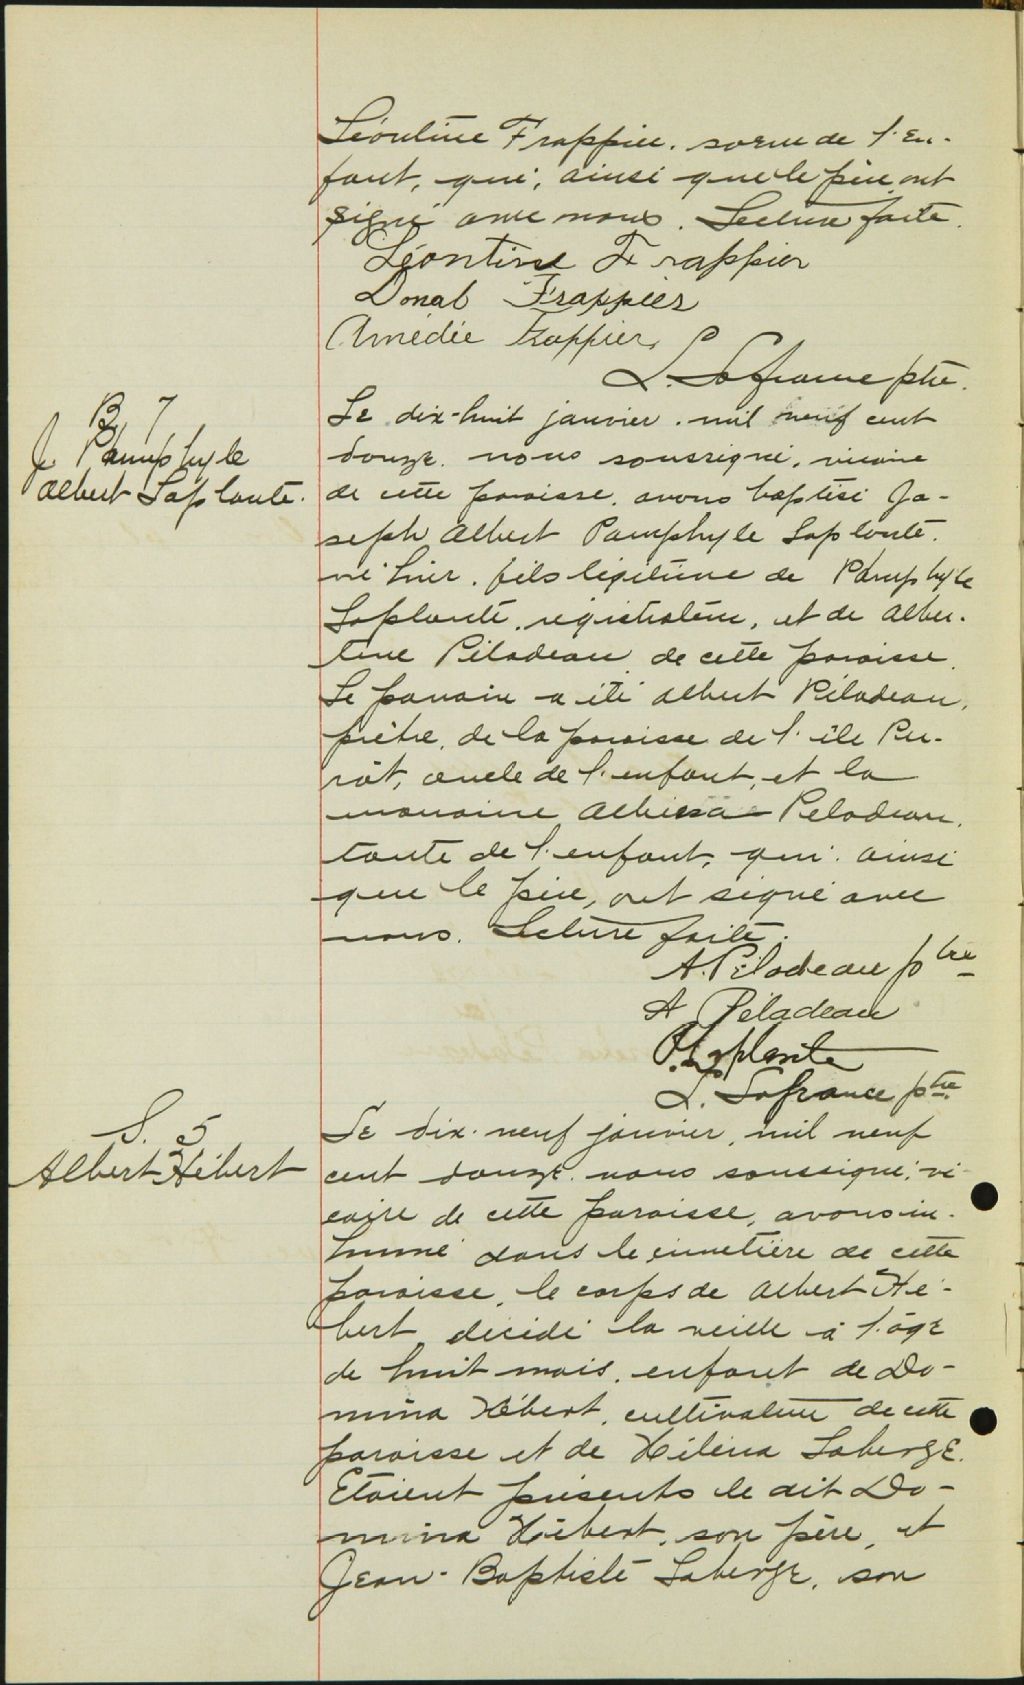 Léontine Frappier, soeur de l'en-
fant, qui, ainsi que le père, ont
signé avec nous. Lecture faite.
Léontine Frappier
Donat Frappier
Amédée Frappier
L. Lafrance ptre.
B. 7
J. Pamphyle
Albert Laplante.
Le dix-huit janvier, mil neuf cent
douze, nous soussigné, vicaire
de cette paroisse, avons baptisé Jo-
seph Albert Pamphyle Laplante,
né hier, fils légitime de Pamphyle
Laplante, registrateur, et de Alber-
tine Péladeau de cette paroisse.
Le parrain a été Albert Péladeau,
prêtre, de la paroisse de l'île Per-
rôt, oncle de l'enfant, et la
marraine Albina Peladeau,
tante de l'enfant, qui, ainsi
que le père, ont signé avec
nous. Lecture faite.
A. Péladeau ptre
A Péladeau
P. Laplante
L. Lafrance ptre.
S. 5
Albert Hébert
Le dix-neuf janvier, mil neuf
cent douze, nous soussigné, vi-
caire de cette paroisse, avons in-
humé dans le cimetière de cette
paroisse, le corps de Albert Hé-
bert, décédé la veille à l'âge
de huit mois, enfant de Do-
mina Hébert, cultivateur de cette
paroisse et de Hiléna Laberge.
Etaient présents le dit Do-
mina Hébert, son père, et
Jean-Baptiste Laberge, son